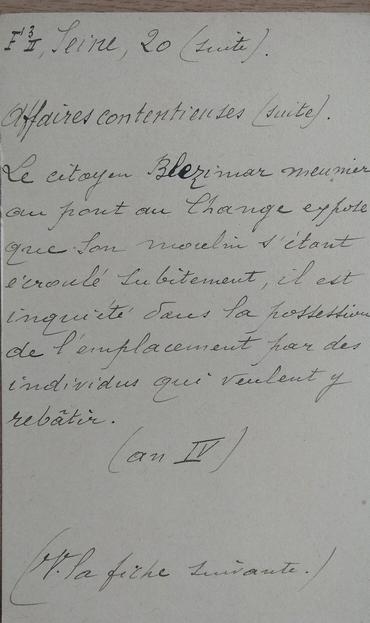 F¹³ II, Seine, 20 (suite).
Affaires contentieuses (suite).
Le citoyen Blezimar meunier
au pont au Change expose
que son moulin s'étant
écroulé subitement, il est
inquiété dans la possession
de l'emplacement par des
individus qui veulent y
rebâtir.
(an IV)
(V. la fiche suivante.)